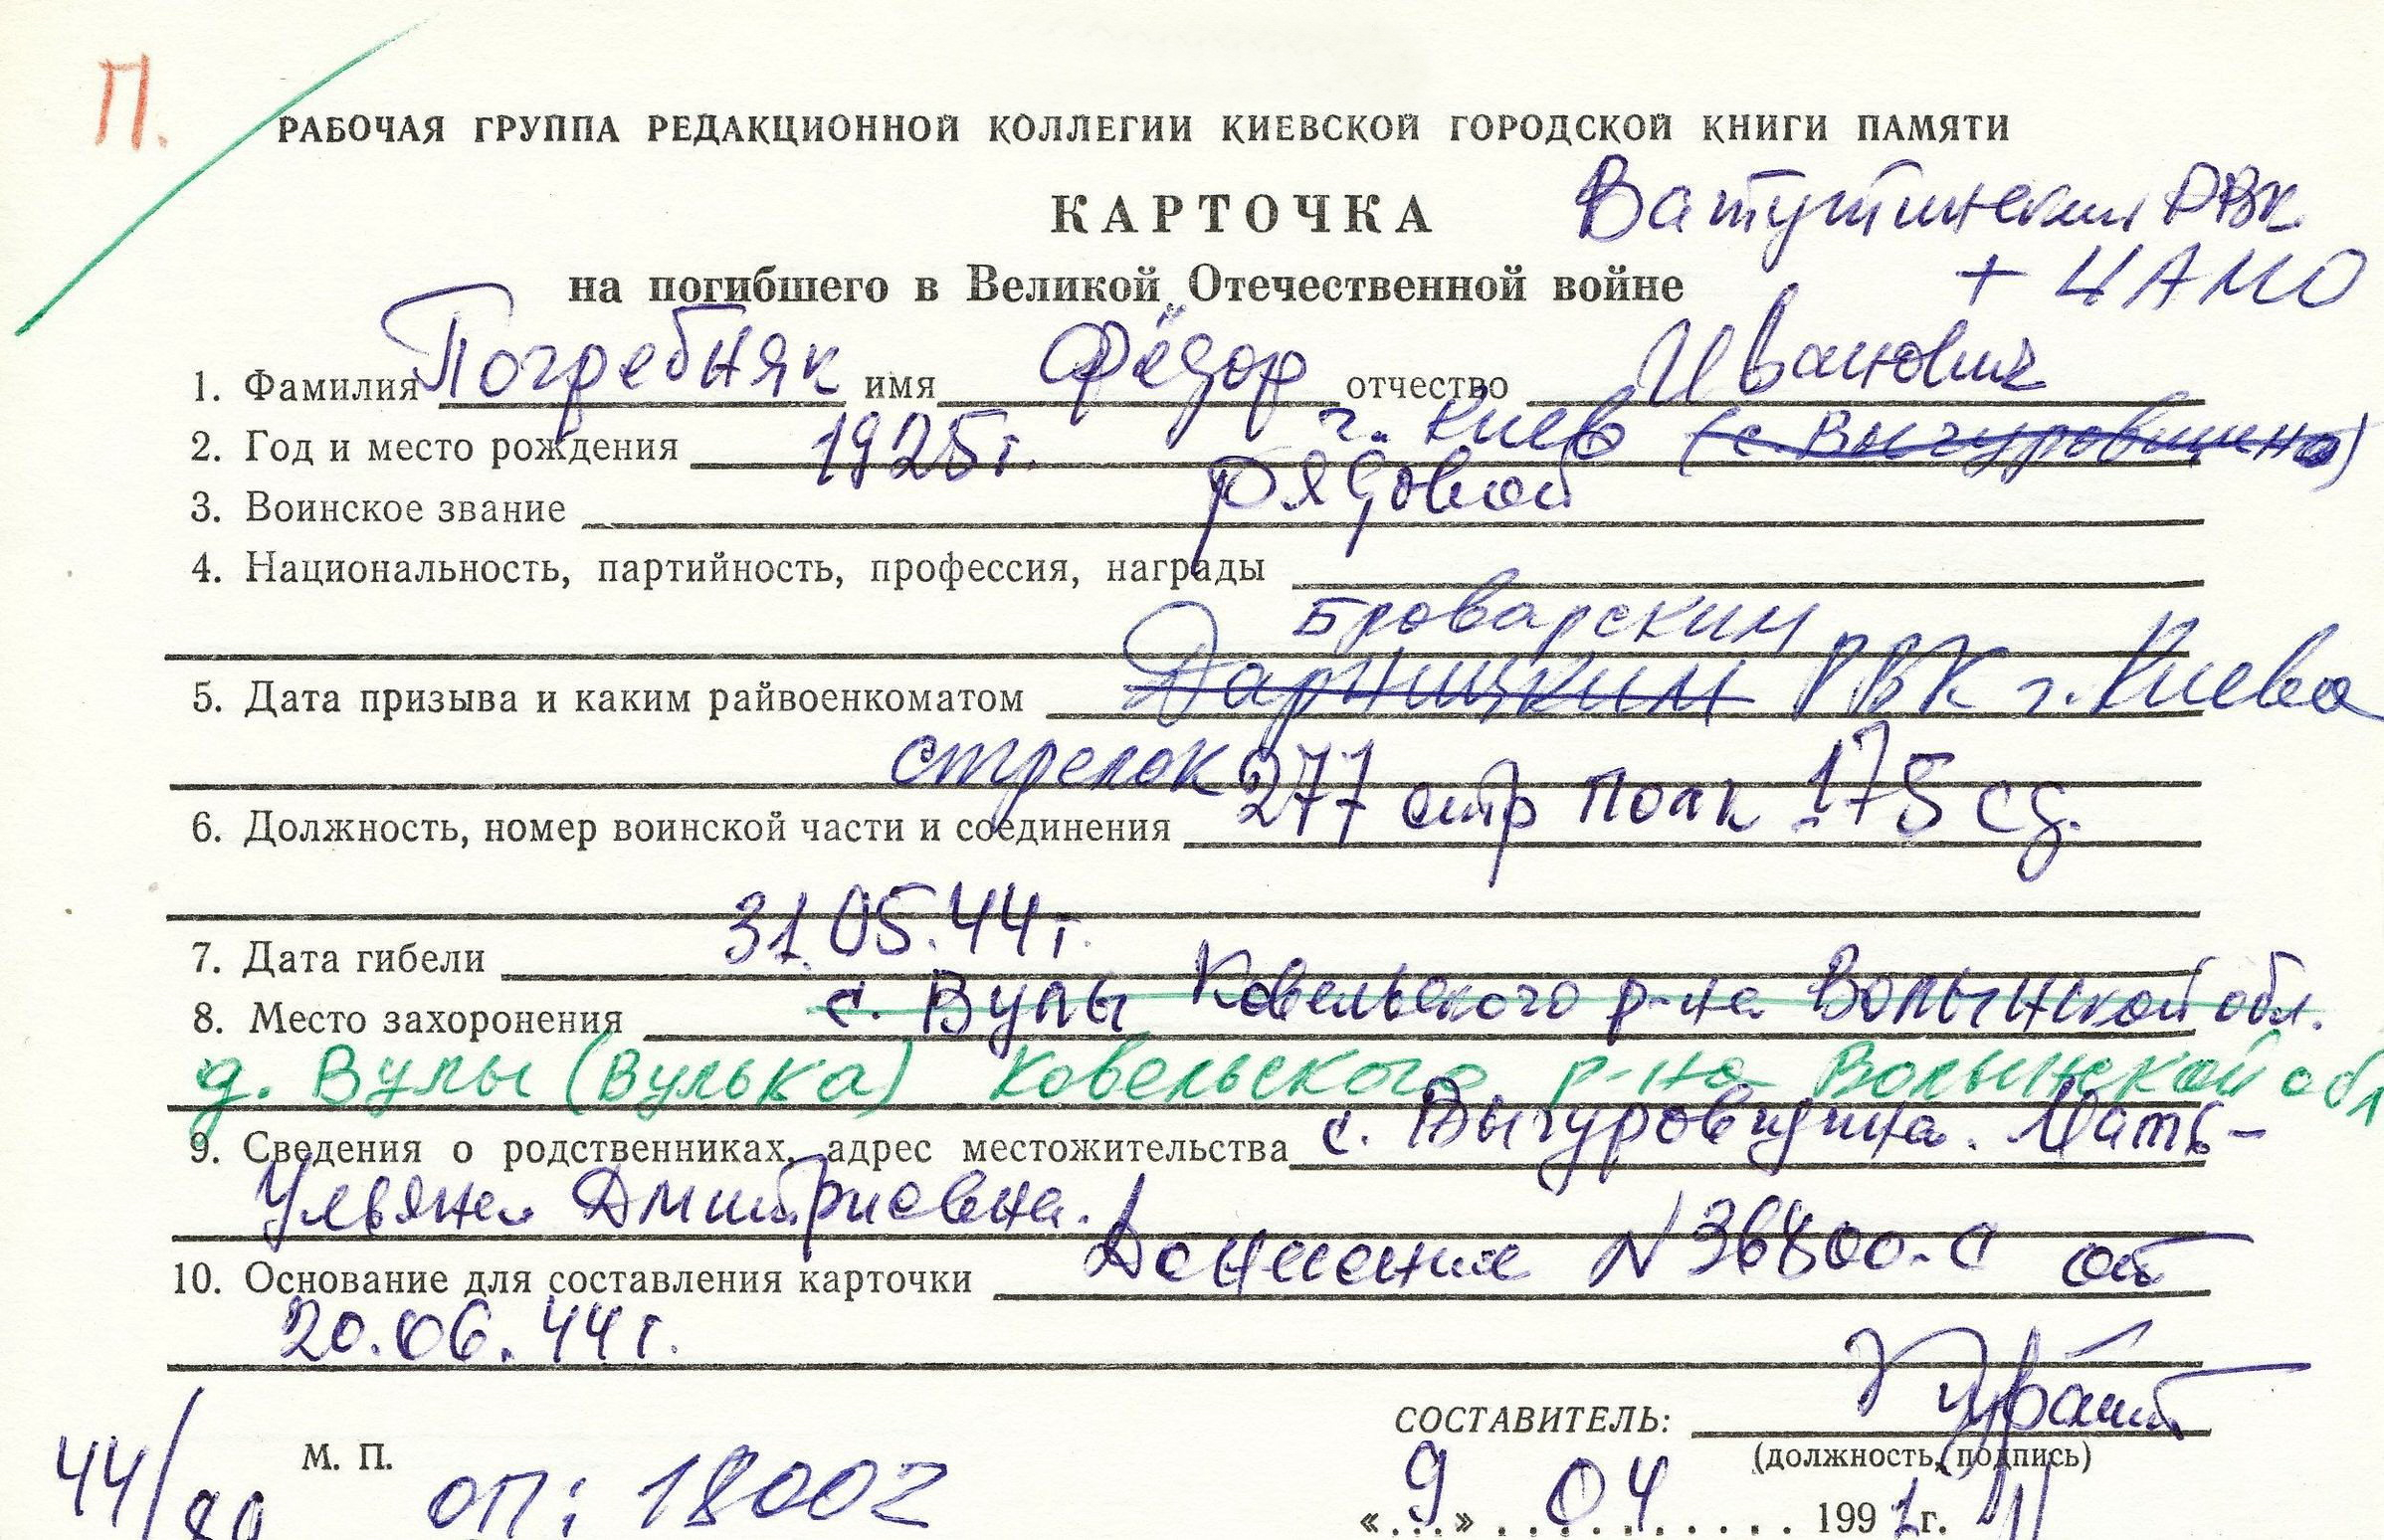 П.
РАБОЧАЯ ГРУППА РЕДАКЦИОННОЙ КОЛЛЕГИИ КИЕВСКОЙ ГОРОДСКОЙ КНИГИ ПАМЯТИ
КАРТОЧКА Ватутинский РВК
на погибшего в Великой Отечественной войне + ЦАМО
1. Фамилия Погребняк имя Фёдор отчество Иванович
2. Год и место рождения 1925г. г. Киев (с. Выгуровщина)
3. Воинское звание рядовой
4. Национальность, партийность, профессия, награды
Броварским
5. Дата призыва и каким райвоенкоматом Дарницким РВК г. Киева
стрелок
6. Должность, номер воинской части и соединения 277 стр полк 175 сд.
7. Дата гибели 31.05.44г.
8. Место захоронения с. Вулы Ковельского р-на Волынской обл.
д. Вулы (Вулька) Ковельского р-на Волынской обл
9. Сведения о родственниках, адрес местожительства с. Выгуровщина. Мать-
Ульяна Дмитриевна.
10. Основание для составления карточки Донесение N 36800-с от
20.06.44г.
СОСТАВИТЕЛЬ:
(должность, подпись)
М. П.
44/80
оп: 18002
«9» 04 1991г.